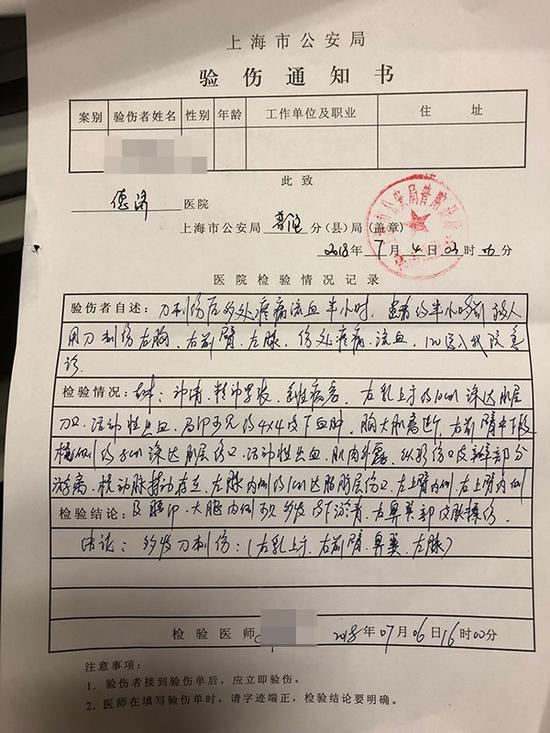 上海市公安局
验伤通知书
案别 验伤者姓名 性别 年龄 工作单位及职业 住址
此致
德济 医院
上海市公安局 普陀 分(县)局(盖章)
2018年7月4日 时 分
医院检验情况记录
验伤者自述：刀刺伤后多处疼痛流血半小时，患者约半小时前被人
用刀刺伤左胸、右前臂、左膝，伤处疼痛、流血，120送入我院急
诊
检验情况：神清，精神 右乳上方约10cm深达肌层
刀口，活动性出血，局部可见约4×4皮下血肿，胸大肌离断，右前臂中下段
约 cm深达肌层伤口，活动性出血，肌肉外露，
游离，桡动脉搏动存在，左膝内侧约1cm 伤口，左上臂内侧
检验结论：及 大腿内侧可见多发皮下淤青，右鼻翼部皮肤擦伤。
结论：多发刀刺伤：(右乳上方、右前臂、鼻翼、左膝)
检验医师 2018年07月06日16时00分
注意事项：
1．验伤者接到验伤单后，应立即验伤。
2．医师在填写验伤单时，请字迹端正，检验结论要明确。